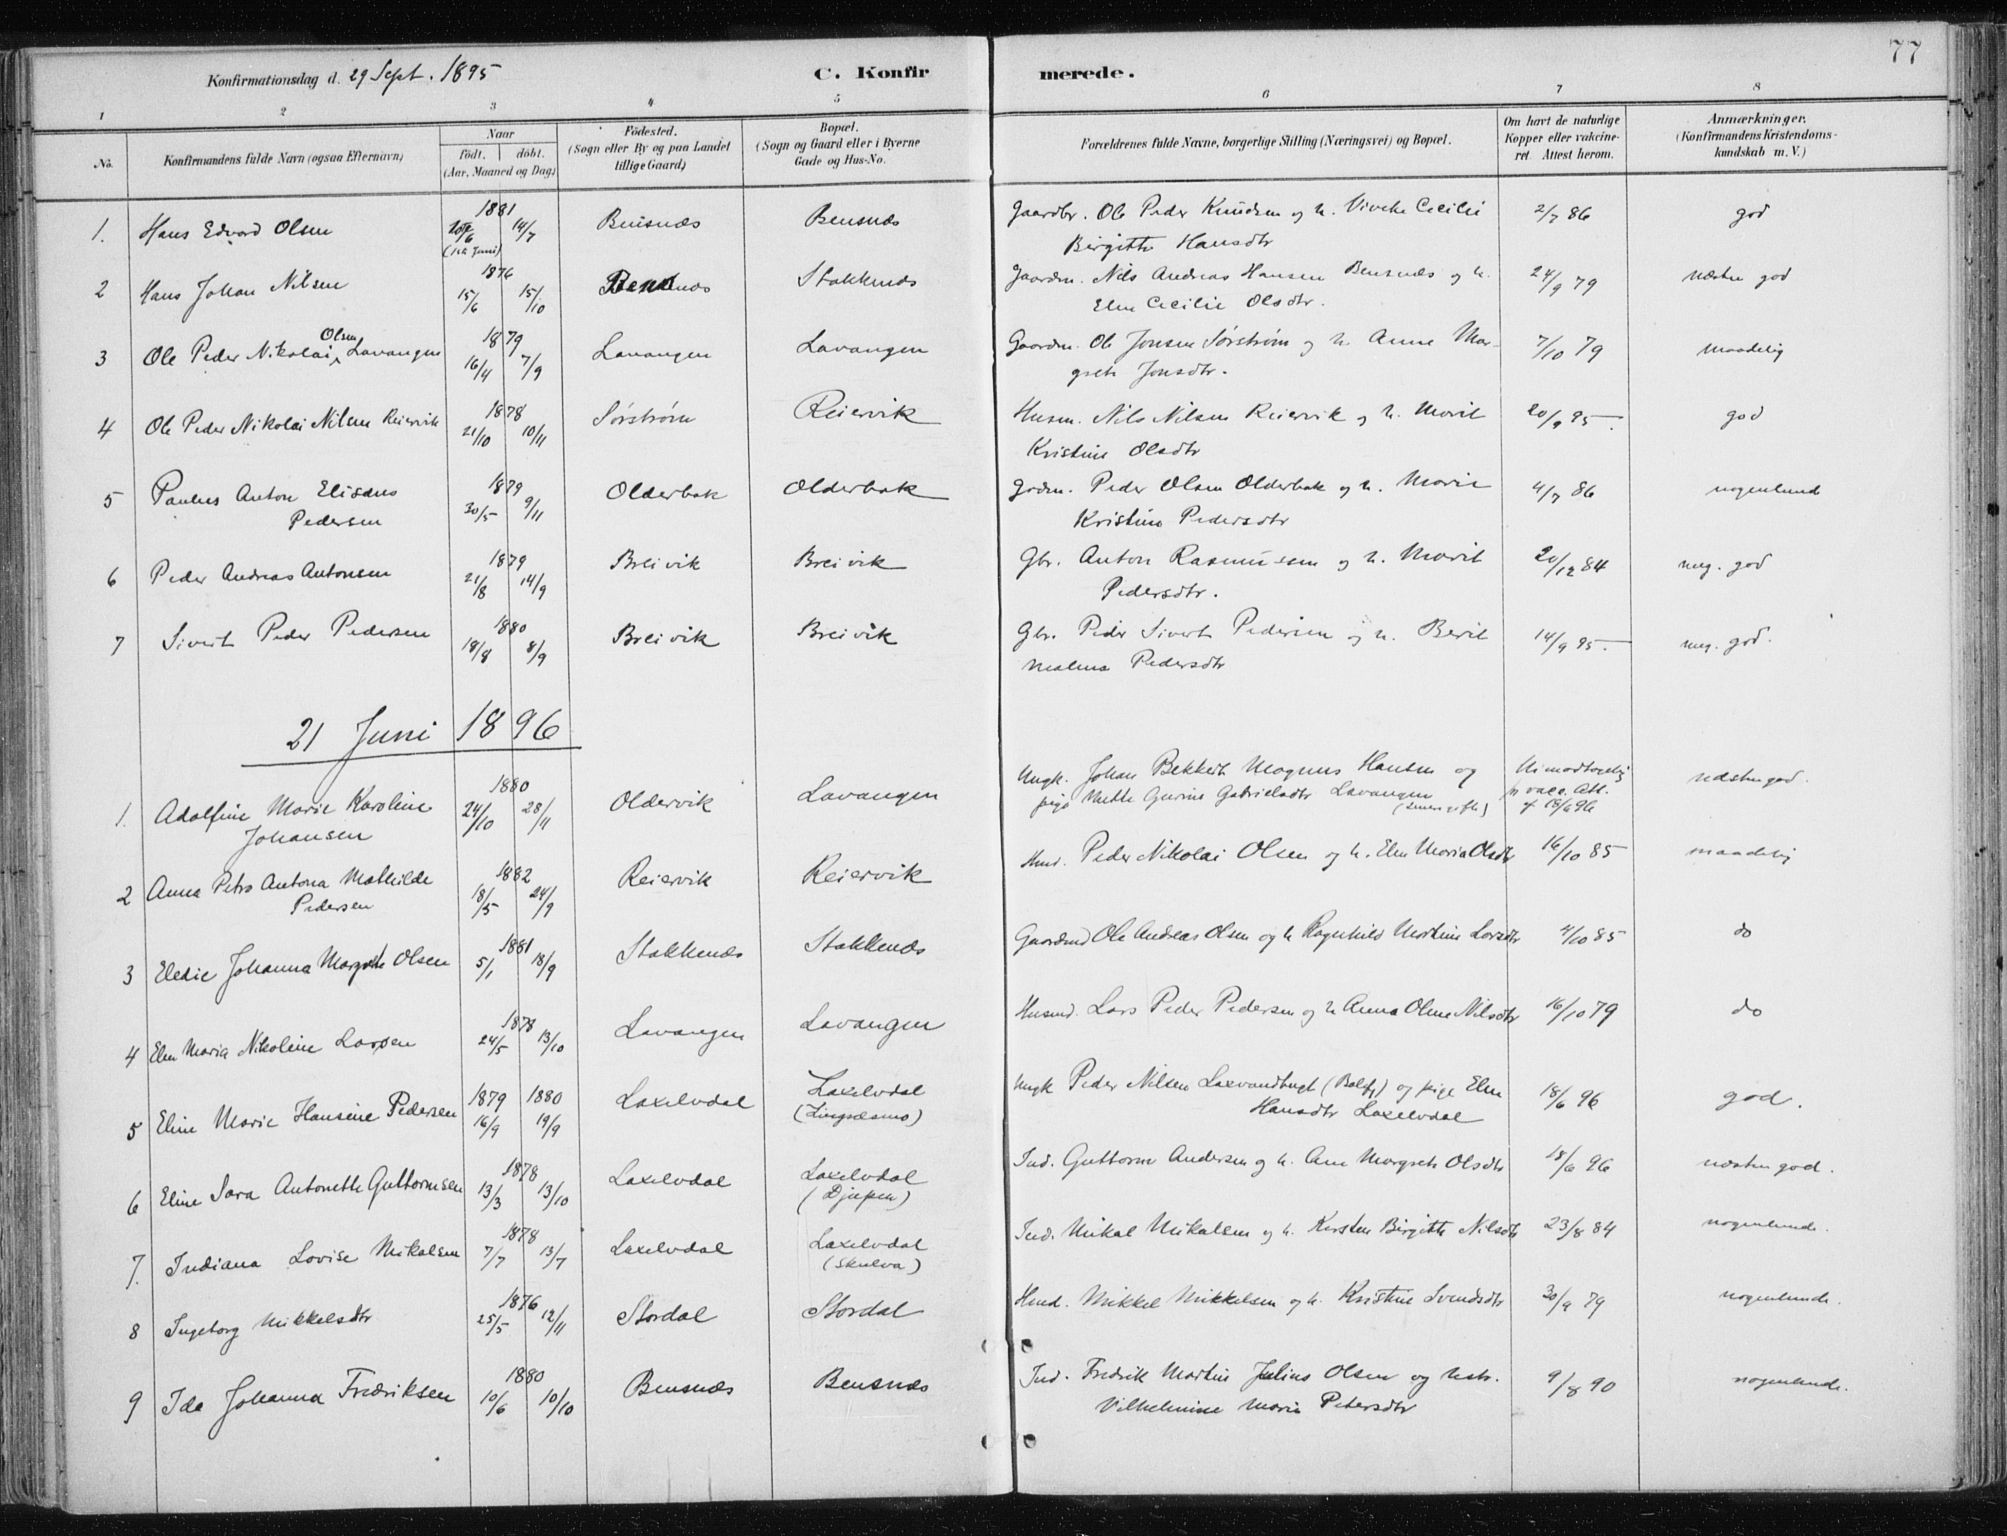 77
Konfirmationsdag d. 29 Sept. 1895
C. Konfirmerede.
1 2 3 4 5 6 7 8
No.
Konfirmandens fulde Navn (ogsaa Efternavn)
Naar
født. døbt.
(Aar, Maaned og Dag)
Fødested.
(Sogn eller By og paa Landet
tillige Gaard)
Bopæl.
(Sogn og Gaard eller i Byerne
Gade og Hus-No.
Forældrenes fulde Navne, borgerlige Stilling (Næringsvei) og Bopæl.
Om havt de naturlige
Kopper eller vakcine-
ret Attest herom.
Anmærkninger.
(Konfirmandens Kristendoms-
kundskab m. V.)
1. Hans Edvard Olsen 1881 14/7 Bensnæs Bensnæs Gaardbr. Ole Peder Knudsen og h. Viveke Cecilie 2/7 86 god
Birgitte Hansdtr
2 Hans Johan Nilsen 1876 15/6 15/10 Stakknæs Gaardm. Nils Andreas Hansen Bensnæs og h. 24/9 79 næsten god
Elen Cecilie Olsdtr.
3 Ole Peder Nikolai Olsen Lavangen 1879 16/4 7/9 Lavangen Lavangen Gaardm. Ole Jonsen Sørstrøm og h. Anne Mar- 7/10 79 maadelig
grete Jonsdtr.
4 Ole Peder Nikolai Nilsen Reiervik 1878 21/10 10/11 Sørstrøm Reiervik Husm. Nils Nilsen Reiervik og h. Marit 20/9 95. god
Kristine Olsdtr
5 Paulus Anton Elisæus 1879 30/5 9/11 Olderbak Olderbak Gdm. Peder Olsen Olderbak og h. Marie 4/7 86 nogenlunde
Pedersen Kristine Pedersdtr
6 Peder Andreas Antonsen 1879 21/8 14/9 Breivik Breivik Gbr. Anton Rasmussen og h. Marit 20/12 84 meg. god
Pedersdtr.
7 Sivert Peder Pedersen 1880 19/8 8/9 Breivik Breivik Gbr. Peder Sivert Pedersen og h. Berit 14/9 95. meg. god.
Malena Pedersdtr
21 Juni 1896
1. Adolfine Marie Karoline 1880 24/10 28/11 Oldervik Lavangen Ungk. Johan Bekkert Magnus Hansen og næsten god.
Johansen pige Mette Gurine Gabrielsdtr Lavangen vacc. Att.
2 Anna Petra Antona Mathilde 1882 18/5 24/9 Reiervik Reiervik Hmd. Peder Nikolai Olsen og h. Elen Maria Olsdtr 16/10 85 maadelig
Pedersen
3 Eledie Johanna Margrete Olsen 1881 5/1 18/9 Stakkenæs Stakkenæs Gaardmd Ole Andreas Olsen og h Ragnhild Martine Larsdtr 4/10 85 do
4 Elen Maria Nikoline Larsen 1878 24/5 13/10 Lavangen Lavangen Husmd. Lars Peder Pedersen og h Anna Oline Nilsdtr 16/10 79 do
5 Eline Marie Hansine Pedersen 1879 1880 16/9 19/9 Laxelvdal Laxelvdal Ungk Peder Nilsen Laxvandbugt (Balsfj) og pige Elen 18/6 96 god.
(Lingræsmo) Hansdtr Laxelvdal
6 Eline Sara Antonette Guttormsen 1878 13/3 13/10 Laxelvdal Laxelvdal Ind. Guttorm Andersen og h. Ane Margrete Olsdtr 18/6 96 næsten god.
(Djupen)
7. Indiana Lovise Mikalsen 1878 7/7 13/7 Laxelvdal Laxelvdal Ind. Mikal Mikalsen og h. Kirsten Birgitte Nilsdtr 23/8 84 nogenlunde.
(Skulva)
8 Ingeborg Mikkelsdtr 1876 25/5 12/11 Stordal Stordal Hmd. Mikkel Mikkelsen og h. Kristine Svendsdtr 30/9 79 nogenlunde.
9 Ida Johanna Fredriksen 1880 10/6 10/10 Bensnæs Bensnæs Ind. Fredrik Martin Julius Olsen og hstr. 9/8 90 nogenlunde.
Vilhelmine Marie Petersdtr